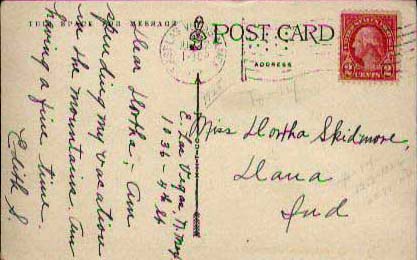 THIS SPACE FOR MESSAGE
POST CARD
ADDRESS
2 CENTS 2
E. Las Vegas, N. Mex
1036-4th St
Dear Dortha; - Am
spending my vacation
in the mountains. Am
having a fine time.
Edith S.
Miss Dortha Skidmore,
Dana
Ind